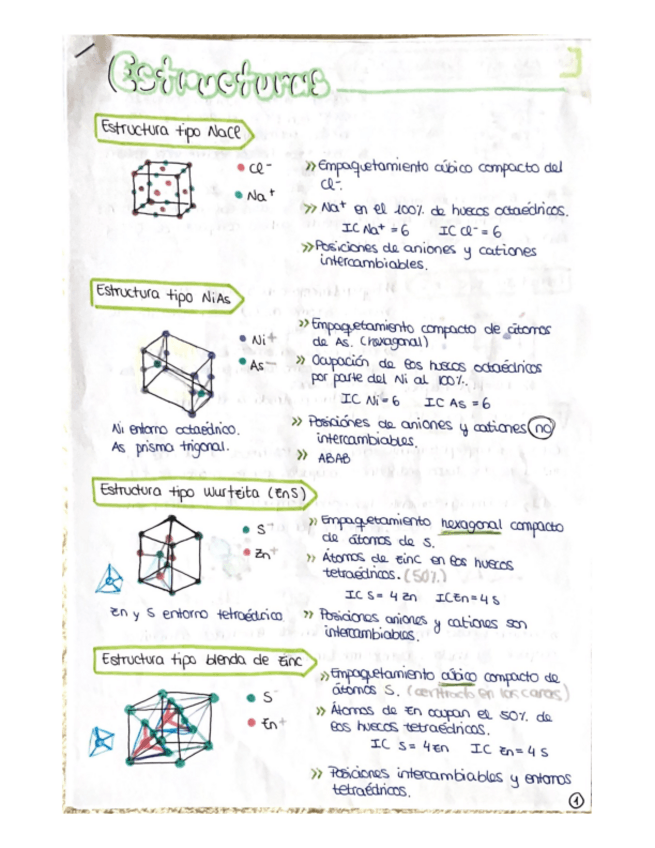 Estructuras
Estructura tipo NaCl
Cl⁻
Na⁺
» Empaquetamiento cúbico compacto del
Cl⁻.
» Na⁺ en el 100% de huecos octaédricos.
IC Na⁺ = 6 IC Cl⁻ = 6
» Posiciones de aniones y cationes
intercambiables.
Estructura tipo NiAs
Ni⁺
As⁻
Ni entorno octaédrico.
As prisma trigonal.
» Empaquetamiento compacto de átomos
de As. (hexagonal)
» Ocupación de los huecos octaédricos
por parte del Ni al 100%.
IC Ni=6 IC As = 6
» Posiciónes de aniones y cationes no
intercambiables.
» ABAB
Estructura tipo Wurteita (ZnS)
S⁻
Zn⁺
Zn y S entorno tetraédrico
» Empaquetamiento hexagonal compacto
de átomos de S.
» Átomos de Zinc en los huecos
tetraédricos. (50%)
IC S= 4 Zn IC Zn= 4 S
» Posiciones aniones y cationes son
intercambiables.
Estructura tipo blenda de Zinc
S⁻
Zn⁺
» Empaquetamiento cúbico compacto de
átomos S. (centrado en las caras)
» Átomos de Zn ocupan el 50% de
los huecos tetraédricos.
IC S= 4 Zn IC Zn= 4 S
» Posiciones intercambiables y entornos
tetraédricos.
1